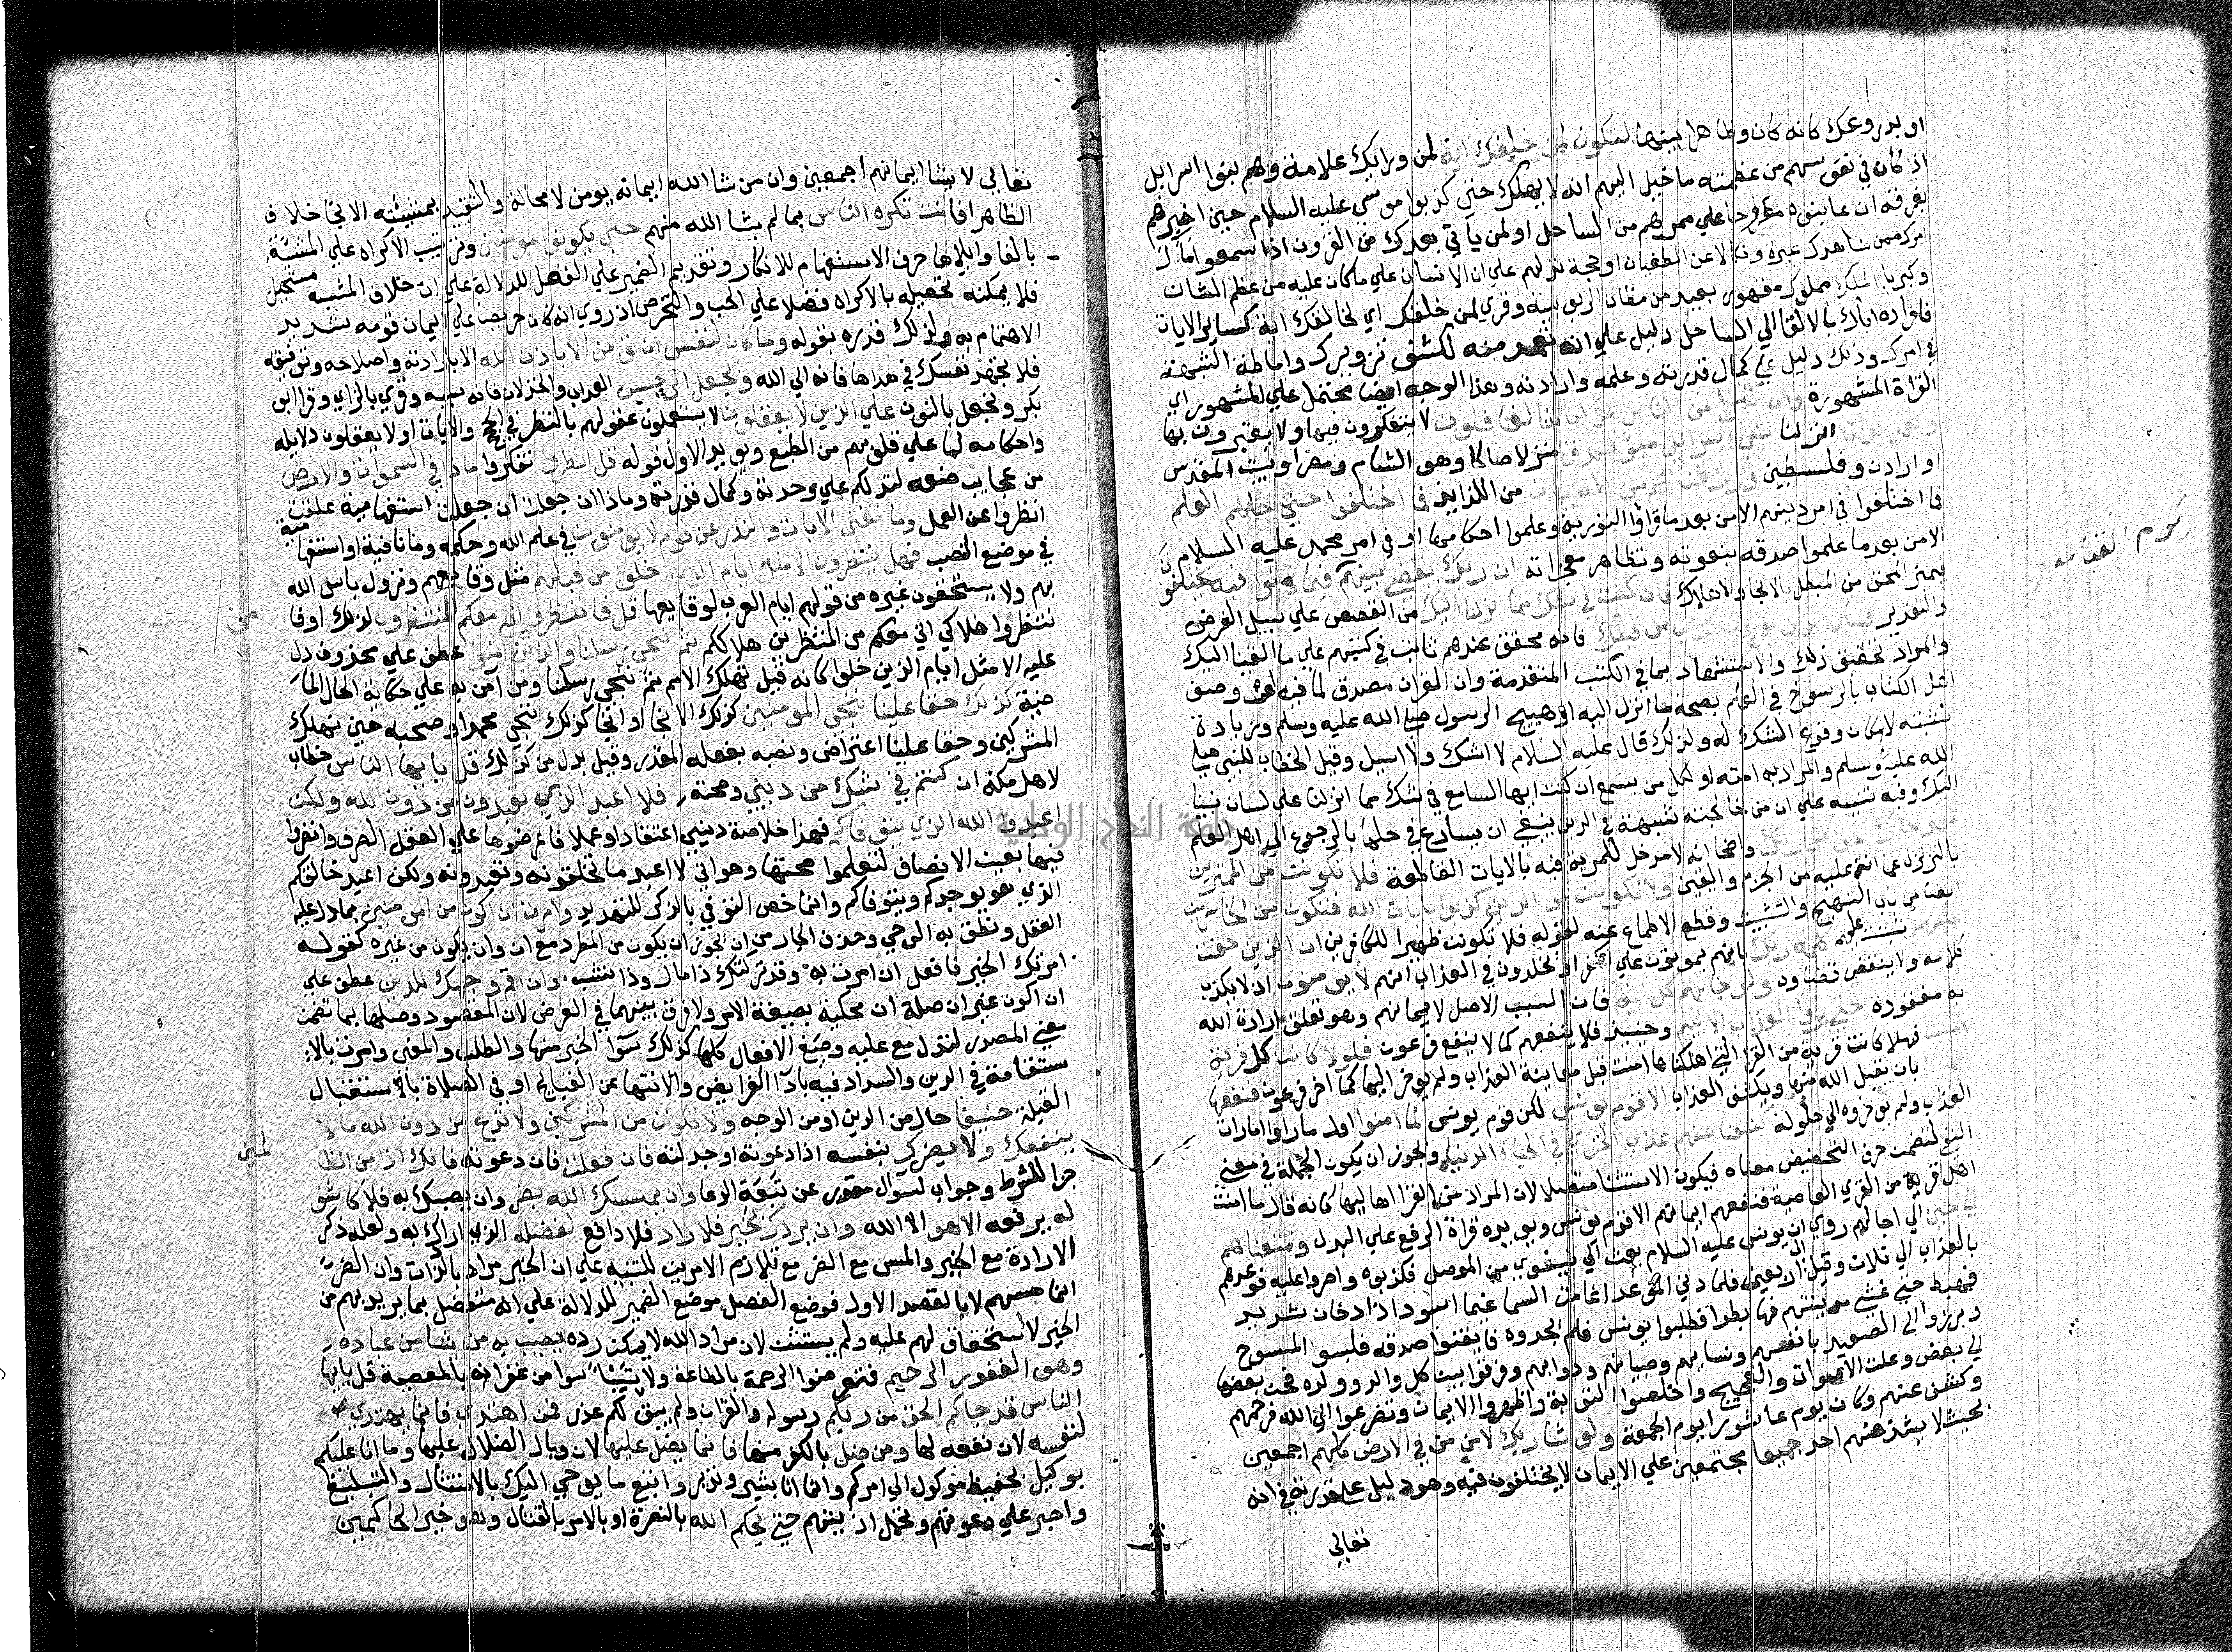 او بدروعك كانه كان وظاهرا بينها لتكون لمن خلفك اية لمن وراك علامة وهم بنوا اسرايل
اذ كان في نفوسهم من عظمته ما خيل اليهم انه لا يهلك حتى كذبوا موسى عليه السلام حين اخبرهم
بغرقه ان عاينوه مطرحا على ممرهم من الساحل او لمن ياتي بعدك من القرون اذا سمعوا مال
امرك ممن شاهدك عبرة ونكالا عن الطغيان او حجة تدلهم على ان الانسان على ما كان عليه من عظم الشان
وكبريا الملك مملوك مقهور بعيد من مظان الربوبية وقري لمن خلقك اي لخالقك اية كساير الايات
فافراده اياك بالالقا الى الساحل دليل على انه تعمد منه لكشف تزويرك واماطة الشبهة
في امرك وذلك دليل على كمال قدرته وعلمه وارادته وهذا الوجه ايضا محتمل على المشهور اي
القراة المشهورة وان كثيرا من الناس عن اياتنا لغافلون لا يتفكرون فيها ولا يعتبرون بها
ولقد بوانا انزلنا بني اسرايل مبوا صدق منزلا صالحا وهو الشام ومصر او بيت المقدس
او اردن وفلسطين ورزقناهم من الطيبات من اللذايذ فما اختلفوا حتى جاهم العلم
فما اختلفوا في امر دينهم الا من بعد ما قراوا التورية وعلموا احكامها او في امر محمد عليه السلام
الا من بعد ما علموا صدقه بنعوته وتظاهر معجزاته ان ربك يقضي بينهم فيما كانوا فيه يختلفون
فيميز المحق من المبطل بالانجا والاهلاك فان كنت في شك مما انزلنا اليك من القصص على سبيل الفرض
والتقدير فاسال الذين يقرون الكتاب من قبلك فانه محقق عندهم ثابت في كتبهم على ما القينا اليك
والمراد تحقيق ذلك والاستشهاد بما في الكتب المتقدمة وان القران مصدق لما فيها او وصف
اهل الكتاب بالرسوخ في العلم بصحة ما انزل اليه او تهييج الرسول صلى الله عليه وسلم وزيادة
تثبته لا امكان وقوع الشك له ولذلك قال عليه السلام لا اشك ولا اسال وقيل الخطاب للنبي صلى
الله عليه وسلم والمراد به امته او لكل من يسمع ان كنت ايها السامع في شك مما انزلنا على لسان نبينا
اليك وفيه تنبيه على ان من خالجته شبهة في الدين ينبغي ان يسارع في حلها بالرجوع الى اهل العلم
لقد جاك الحق من ربك واضحا انه لا مدخل للمرية فيه بالايات القاطعة فلا تكونن من الممترين
بالتزلزل عما انت عليه من الجزم واليقين ولا تكونن من الذين كذبوا بايات الله فتكون من الخاسرين
ايضا من باب التهييج والتثبيت وقطع الاطماع عنه لقوله فلا تكونن ظهيرا للكافرين ان الذين حقت
عليهم ثبتت عليهم كلمة ربك بانهم يموتون على الكفر او يخلدون في العذاب انهم لا يومنون اذ لا يكذب
كلامه ولا ينتقض قضاوه ولو جاتهم كل اية فان السبب الاصل لايمانهم وهو تعلق ارادة الله
به مفقودة حتى يروا العذاب الاليم وحينئذ فلا ينفعهم كما لا ينفع فرعون فلولا كانت كل قرية
امنت فهلا كانت قرية من القرا التي اهلكناها امنت قبل معاينة العذاب ولم يوخر اليها كما اخر فرعون فنفعها
بان يقبل الله منها ويكشف العذاب الا قوم يونس لكن قوم يونس لما امنوا اول ما راوا امارات
العذاب ولم يوخروه الى حلوله كشفنا عنهم عذاب الخزي في الحياة الدنيا ويجوز ان يكون الجملة في معنى
النفي لتضمن حرف التحضيض معناه فيكون الاستثنا متصلا لان المراد من القرا اهاليها كانه قال ما امنت
اهل قرية من القري العاصية فنفعهم ايمانهم الا قوم يونس ويويده قراة الرفع على البدل ومتعناهم
الى حين الى اجالهم روي ان يونس عليه السلام بعث الى نينوى من الموصل فكذبوه واصروا عليه فوعدهم
بالعذاب الى ثلاث وقيل اربعين فلما دنى الموعد اغامت السما غيما اسود ذا دخان شديد
فهبط حتى غشي مدينتهم فهابوا فطلبوا يونس فلم يجدوه فايقنوا صدقه فلبسوا المسوح
وبرزوا الى الصعيد بانفسهم ونسايهم وصبيانهم ودوابهم وفرقوا بين كل والدة وولدها فحن بعضها
الى بعض وعلت الاصوات والعجيج واخلصوا التوبة واظهروا الايمان وتضرعوا الى الله فرحمهم
وكشف عنهم وكان يوم عاشورا يوم الجمعة ولو شا ربك لامن من في الارض كلهم اجمعين
بحيث لا يشذ منهم احد جميعا مجتمعين على الايمان لا يختلفون فيه وهو دليل على قدرته في انه
تعالى
يوم القيامة
تعالى لا يشا ايمانهم اجمعين وان من شا الله ايمانه يومن لا محالة والتقييد بمشيئته الالجا خلاف
الظاهر افانت تكره الناس بما لم يشا الله منهم حتى يكونوا مومنين وترتيب الاكراه على المشيئة
بالفا وايلاها حرف الاستفهام للانكار وتقديم الضمير على الفعل للدلالة على ان خلاف المشيه مستحيل
فلا يمكنه تحصيله بالاكراه فضلا على الحث والتحريض اذ روي انه كان حريصا على ايمان قومه شديد
الاهتمام به ولذلك قدره بقوله وما كان لنفس ان تومن الا باذن الله الا بارادته واصلاحه وتوفيقه
فلا تجهد نفسك في هداها فانه الى الله ويجعل الرجس العذاب والخذلان فانه سببه وقري بالزاي وقرا ابو
بكر ونجعل بالنون على الذين لا يعقلون لا يستعملون عقولهم بالنظر في الحجج والايات او لا يعقلون دلايله
واحكامه لما على قلوبهم من الطبع ويويد الاول قوله قل انظروا تفكروا ماذا في السموات والارض
من عجايب صنعه لتدلكم على وحدته وكمال قدرته وماذا ان جعلت ان جعلت استفهامية علقت
انظروا عن العمل وما تغني الايات والنذر عن قوم لا يومنون في علم الله وحكمه وما نافية او استفهامية
في موضع النصب فهل ينتظرون الا مثل ايام الذين خلوا من قبلهم مثل وقايعهم ونزول باس الله
بهم ولا يستحقون غيره من قولهم ايام العرب لوقايعها قل فانتظروا اني معكم من المنتظرين لذلك او فا
نتظروا هلاكي اني معكم من المنتظرين هلاككم ثم ننجي رسلنا والذين امنوا عطف على محذوف دل
عليه الا مثل ايام الذين خلوا كانه قيل نهلك الامم ثم ننجي رسلنا ومن امن به على حكاية الحال الما
ضية كذلك حقا علينا ننجي المومنين كذلك الانجا او انجا كذلك ننجي محمدا وصحبه حين نهلك
المشركين وحقا علينا اعتراض ونصبه بفعله المقدر وقيل بدل من كذلك قل يايها الناس خطاب
لاهل مكة ان كنتم في شك من ديني وصحته فلا اعبد الذين تعبدون من دون الله ولكن
اعبد الله الذي يتوفاكم فهذا خلاصة ديني اعتقادا وعملا فاعرضوها على العقل الصرف وانظروا
فيها بعين الانصاف لتعلموا صحتها وهو اني لا اعبد ما تختلقونه وتعبدونه ولكن اعبد خالقكم
الذي هو يوجدكم ويتوفاكم وانما خص التوفي بالذكر للتهديد وامرت ان اكون من المومنين بما دل عليه
العقل ونطق به الوحي وحذف الجار من ان يجوز ان يكون من المطرد مع ان وان يكون من غيره كقوله
امرتك الخير فافعل ان امرت به وقد تركتك ذا مال وذا نشب وان اقم وجهك للدين عطف على
ان اكون غير ان صلة ان محكية بصيغة الامر ولا فرق بينهما في الغرض لان المقصود وصلها بما تضمن
معنى المصدر لتدل معه عليه وصيغ الافعال كلها كذلك سوا الخبر منها والطلب والمعنى وامرت بالا
ستقامة في الدين والسداد فيه بادا الفرايض والانتها عن القبايح او في الصلاة بالاستقبال
القبلة حنيفا حال من الدين او من الوجه ولا تكونن من المشركين ولا تدع من دون الله ما لا
ينفعك ولا يضرك بنفسه اذا دعوته او خذلته فان فعلت فان دعوته فانك اذا من الظا
جزا للشرط وجواب لسوال مقدر عن تبعة الدعا وان يمسسك الله بضر وان يصبك به فلا كاشف
له يرفعه الا هو الا الله وان يردك بخير فلا راد فلا دافع لفضله الذي ارادك به ولعله ذكر
الارادة مع الخير والمس مع الضر مع تلازم الامرين للتنبيه على ان الخير مراد بالذات وان الضر
انما مسهم لا بالقصد الاول فوضع الفضل موضع الضمير للدلالة على انه متفضل بما يريد بهم من
الخير لا استحقاق لهم عليه ولم يستثن لان مراد الله لا يمكن رده يصيب به من يشا من عباده
وهو الغفور الرحيم فتعرضوا لرحمة بالطاعة ولا تيئسوا من غفرانه بالمعصية قل يايها
الناس قد جاكم الحق من ربكم رسوله والقران ولم يبق لكم عذر فمن اهتدى فانما يهتدي
لنفسه لان نفعه لها ومن ضل بالكفر منها فانما يضل عليها لان وبال الضلال عليها وما انا عليكم
بوكيل بحفيظ موكول الى امركم وانما انا بشير ونذير واتبع ما يوحى اليك بالامتثال والتبليغ
واصبر على دعوتهم وتحمل اذيتهم حتى يحكم الله بالنصرة او بالامر بالقتال وهو خير الحاكمين
من
لمين